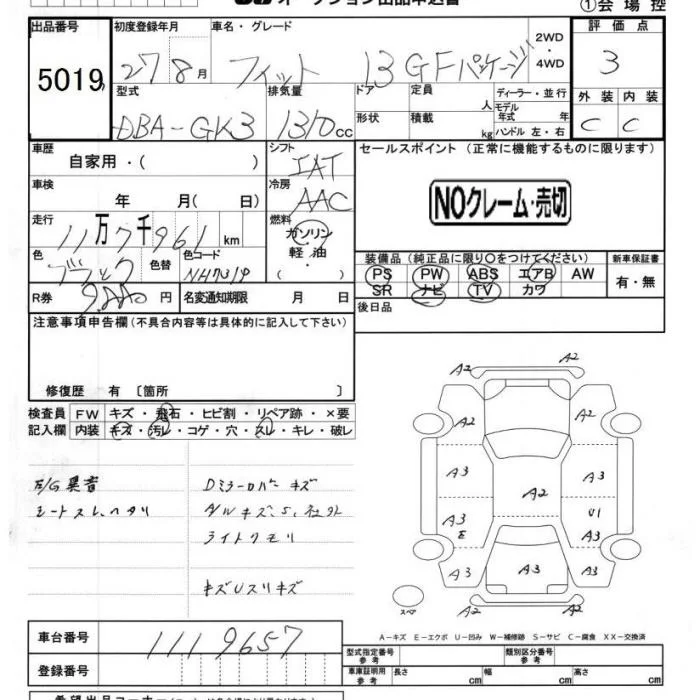 オークション出品申込書 ①会場控
出品番号 初度登録年月 車名・グレード 2WD ・4WD 評価点
5019 27 8月 フィット 13GFパッケージ 3
型式 排気量 ドア 定員 人 ディーラー・並行 外装 内装
DBA-GK3 1310cc 形状 積載 kg モデル年式 年 ハンドル 左・右 C C
車歴 シフト セールスポイント (正常に機能するものに限ります)
自家用・( ) IAT
車検 冷房 NOクレーム・売切
年 月( 日) AAC
走行 燃料
11万7千961km ガソリン
色 色替 色コード 軽油・ 装備品(純正品に限り○をつけてください) 新車保証書
ブラック NH731P ( ) PS PW ABS エアB AW 有・無
SR ナビ TV カワ
R券 円 名変通知期限 月 日 後日品
注意事項申告欄(不具合内容等は具体的に記入して下さい)
修復歴 有 〔箇所 〕
検査員 FW キズ・飛石・ヒビ割・リペア跡・×要
記入欄 内装 キズ・汚レ・コゲ・穴・スレ・キレ・破レ
E/G異音 Dミラーカバーキズ
シートスレ、ヘタリ
ライトクモリ
A2 A2
A2 A2
A3 A3
A2
A3 U1
E
A3 A3
A3 A3
A2 A2
スペア
A-キズ E-エクボ U-凹み W-補修跡 S-サビ C-腐食 XX-交換済
車台番号 1119657
登録番号
型式指定番号 参考 類別区分番号 参考
車庫証明用 参考 長さ cm 幅 cm 高さ cm